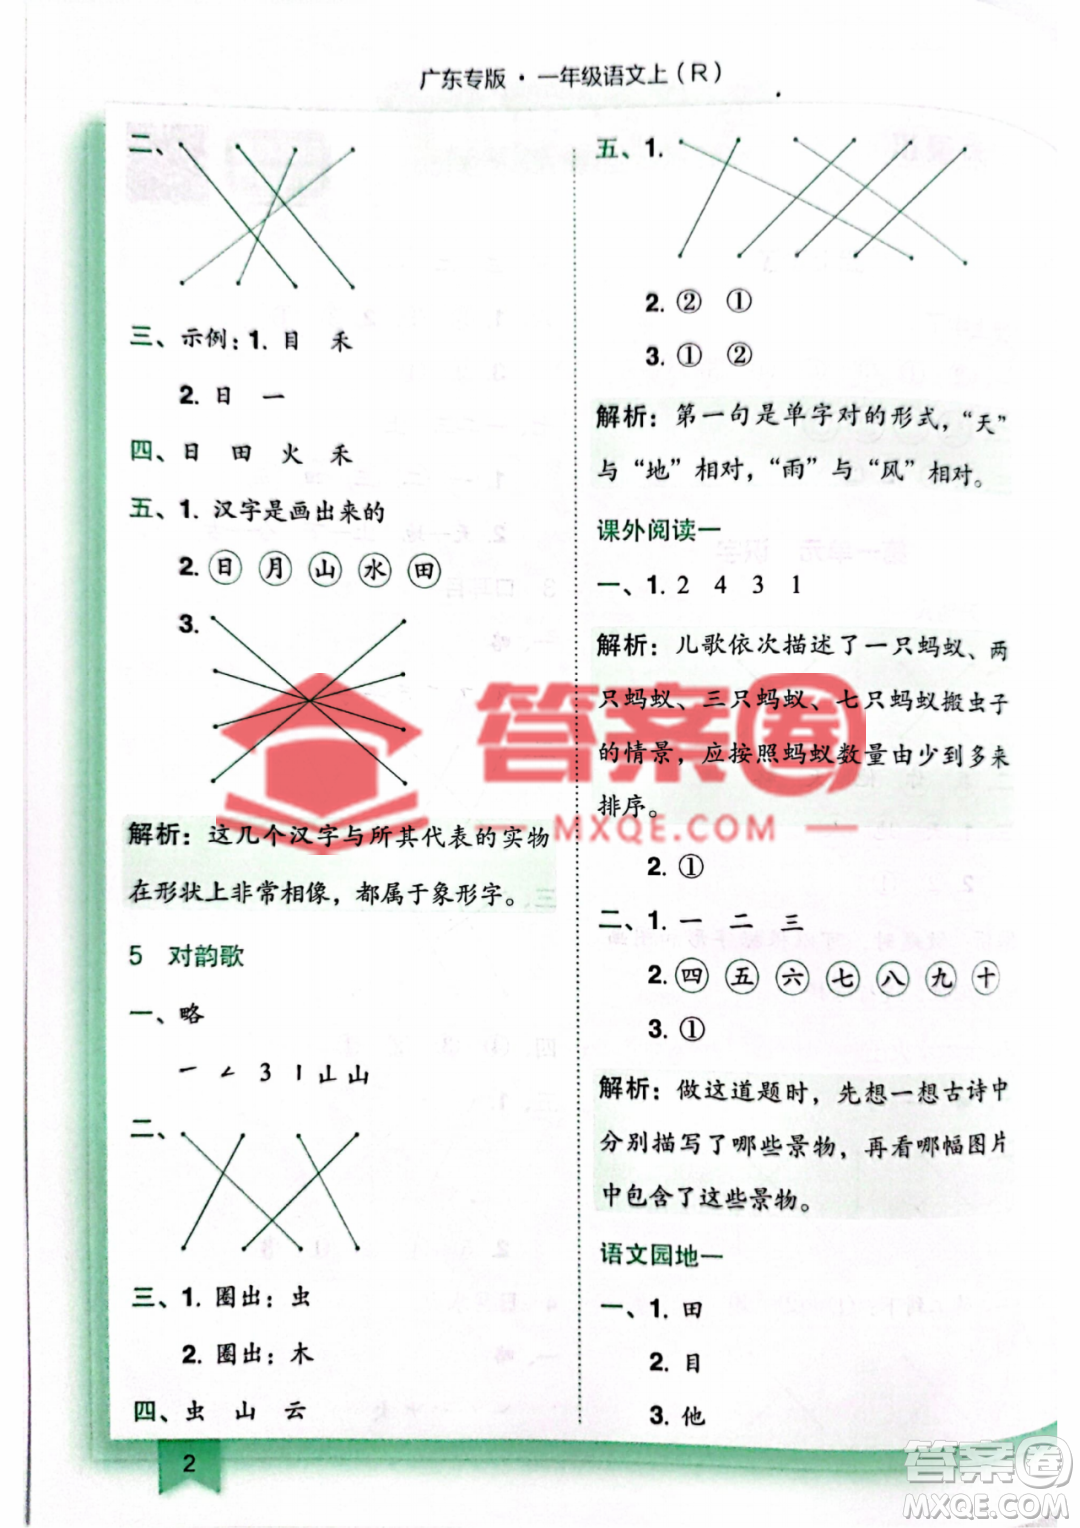 广东专版·一年级语文上(R)
二、
三、示例:1. 目 禾
2. 日 一
四、日 田 火 禾
五、1. 汉字是画出来的
2. 日 月 山 水 田
3.
解析:这几个汉字与所其代表的实物
在形状上非常相像,都属于象形字。
5 对韵歌
一、略
二、
三、1. 圈出:虫
2. 圈出:木
四、虫 山 云
2
五、1.
2. ② ①
3. ① ②
解析:第一句是单字对的形式,“天”
与“地”相对,“雨”与“风”相对。
课外阅读一
一、1. 2 4 3 1
解析:儿歌依次描述了一只蚂蚁、两
只蚂蚁、三只蚂蚁、七只蚂蚁搬虫子
的情景,应按照蚂蚁数量由少到多来
排序。
2. ①
二、1. 一 二 三
2. 四 五 六 七 八 九 十
3. ①
解析:做这道题时,先想一想古诗中
分别描写了哪些景物,再看哪幅图片
中包含了这些景物。
语文园地一
一、1. 田
2. 目
3. 他
答案圈
MXQE.COM
答案圈
MXQE.COM